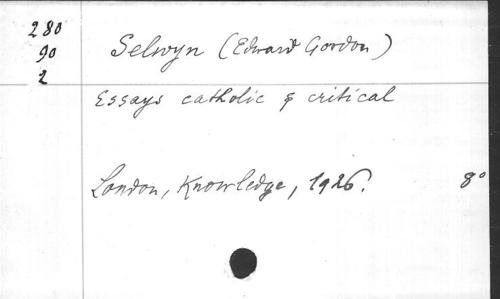 280
90
2
Selwyn (Edward Gordon)
Essays catholic & critical
London, Knowledge, 1926. 8°